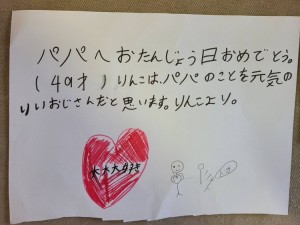 パパへおたんじょう日おめでとう。
(49才)りんこは、パパのことを元気の
いいおじさんだと思います。りんこより。
大大大好き